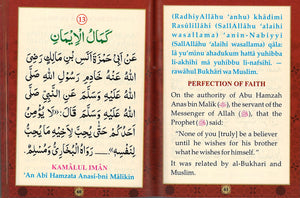 13
كَمَالُ الْإِيْمَانِ
عَنْ أَبِيْ حَمْزَةَ أَنَسِ بْنِ مَالِكٍ رَضِيَ
اللهُ عَنْهُ خَادِمِ رَسُوْلِ اللهِ صَلَّى
اللهُ عَلَيْهِ وَسَلَّمَ عَنِ النَّبِيِّ صَلَّى
اللهُ عَلَيْهِ وَسَلَّمَ قَالَ: لَا يُؤْمِنُ
أَحَدُكُمْ حَتَّى يُحِبَّ لِأَخِيْهِ مَا يُحِبُّ
لِنَفْسِهِ... رَوَاهُ الْبُخَارِيُّ وَمُسْلِمٌ.
KAMÂLUL IMÂN
'An Abî Hamzata Anasi-bni Mâlikin
(RadhiyAllâhu 'anhu) khâdimi
Rasûlillâhi (SallAllâhu 'alaihi
wasallama) 'anin-Nabiyyi
(SallAllâhu 'alaihi wasallama) qâla:
lâ yu'minu ahadukum hattâ yuhibba
li-akhîhi mâ yuhibbu li-nafsihi. —
rawâhul Bukhâri wa Muslim.
PERFECTION OF FAITH
On the authority of Abu Hamzah
Anas bin Malik (ﷺ), the servant of the
Messenger of Allah (ﷺ), that the
Prophet (ﷺ) said:
"None of you [truly] be a believer
until he wishes for his brother
what he wishes for himself."
It was related by al-Bukhari and
Muslim.